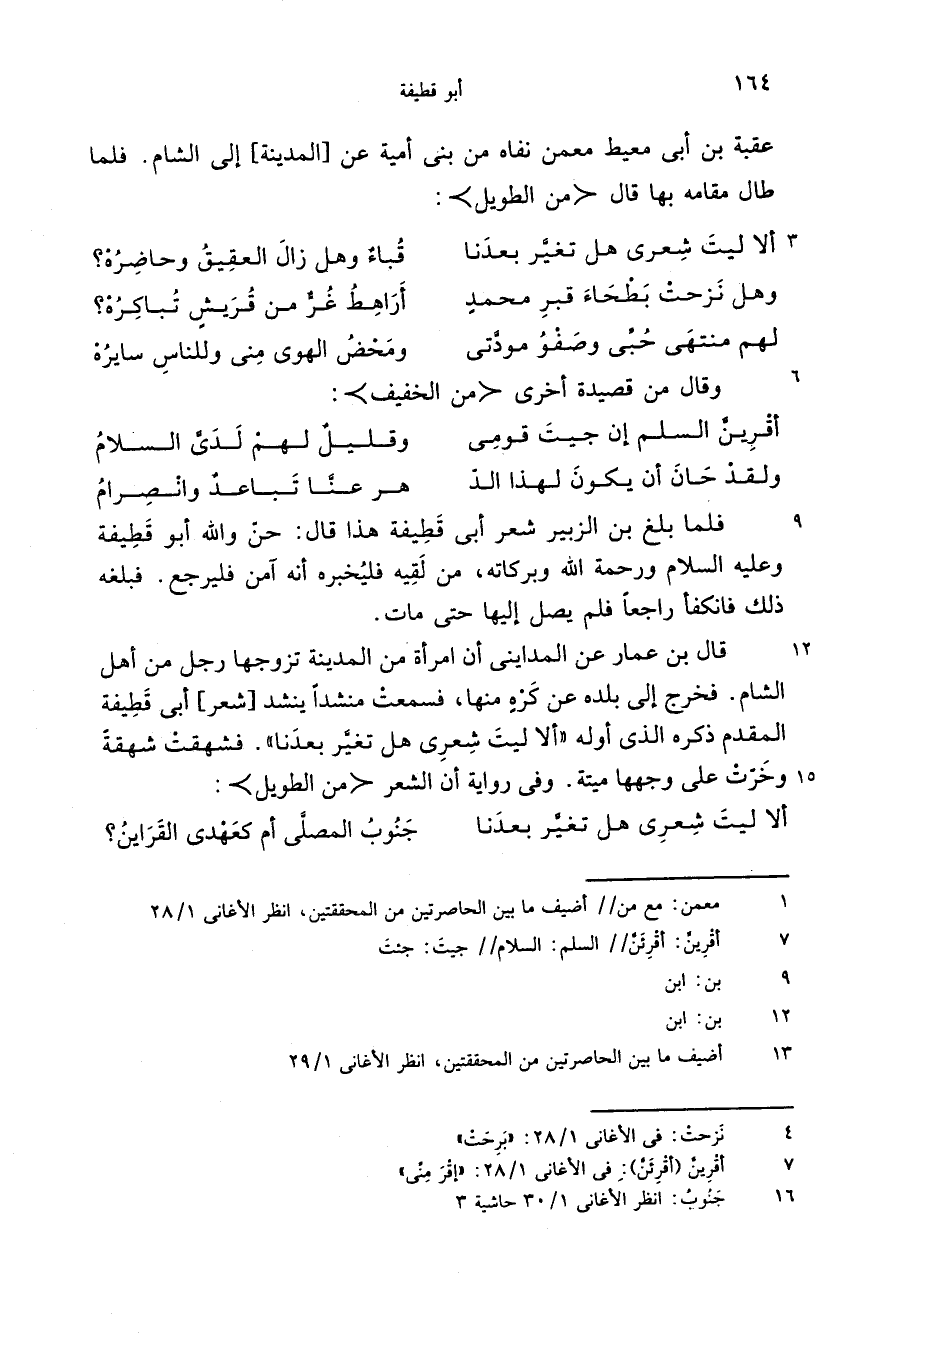 ١٦٤ أبو قطيفة
عقبة بن أبى معيط معمن نفاه من بنى أمية عن [المدينة] إلى الشام. فلما
طال مقامه بها قال <من الطويل>:
٣ ألا ليتَ شِعرى هل تغيَّر بعدَنا قُباءُ وهل زالَ العقِيقُ وحاضِرُهْ؟
وهل نَزحتْ بَطْحَاءَ قبرِ محمدٍ أَرَاهِطُ غُرٌّ من قُرَيشٍ تُباكِرُهْ؟
لهم منتهَى حُبِّى وصَفْوُ مودَّتى ومَحْضُ الهوى مِنى وللناسِ سايرُهْ
٦ وقال من قصيدة أخرى <من الخفيف>:
أقْرِينَّ السلم إن جيتَ قومِى وقليلٌ لهمْ لَدَىَّ السلامُ
ولقدْ حَانَ أن يكونَ لهذا الدّ هر عنَّا تَباعدٌ وانْصِرامُ
٩ فلما بلغ بن الزبير شعر أبى قَطِيفة هذا قال: حنّ والله أبو قَطِيفة
وعليه السلام ورحمة الله وبركاته، من لَقِيه فليُخبره أنه آمن فليرجع. فبلغه
ذلك فانكفأ راجعاً فلم يصل إليها حتى مات.
١٢ قال بن عمار عن المداينى أن امرأة من المدينة تزوجها رجل من أهل
الشام. فخرج إلى بلده عن كَرْهٍ منها، فسمعتْ منشداً ينشد [شعر] أبى قَطِيفة
المقدم ذكره الذى أوله «ألا ليتَ شِعرِى هل تغيَّر بعدَنا». فشهقتْ شهقةً
١٥ وخَرّتْ على وجهها ميتة. وفى رواية أن الشعر <من الطويل>:
ألا ليتَ شِعرِى هل تغيَّر بعدَنا جَنُوبُ المصلَّى أم كعَهْدى القَرَاينُ؟
١ معمن: مع من// أضيف ما بين الحاصرتين من المحققتين، انظر الأغانى ٢٨/١
٧ أقْرِينَّ: أقْرِئَنَّ// السلم: السلام// جيتَ: جئتَ
٩ بن: ابن
١٢ بن: ابن
١٣ أضيف ما بين الحاصرتين من المحققتين، انظر الأغانى ٢٩/١
٤ نَزحتْ: فى الأغانى ٢٨/١: «بَرِحَتْ»
٧ أقْرِينَّ (أقْرِئَنَّ): فى الأغانى ٢٨/١: «إقْرَ مِنِّى»
١٦ جَنُوبُ: انظر الأغانى ٣٠/١ حاشية ٣